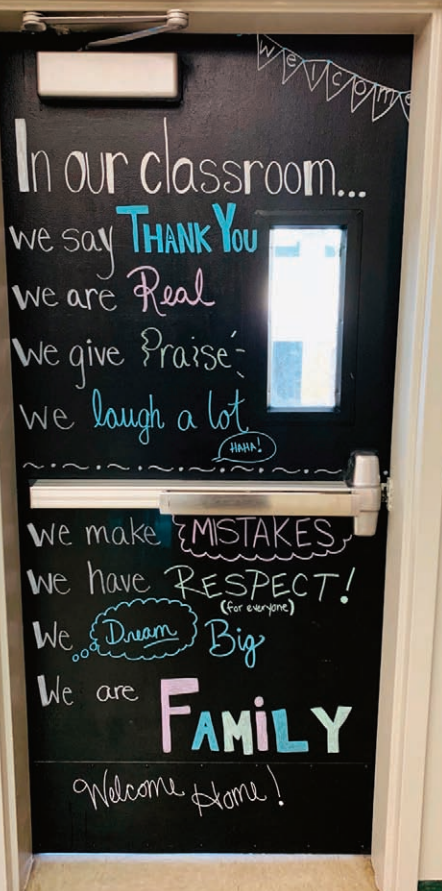 welcome
In our classroom...
we say THANK YOU
we are Real
we give Praise
we laugh a lot
HAHA!
we make MISTAKES
we have RESPECT!
(for everyone)
We Dream Big
We are FAMiLY
Welcome Home!